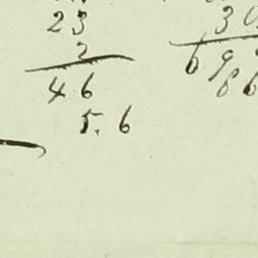 23
2
46
5. 6
30
69
86